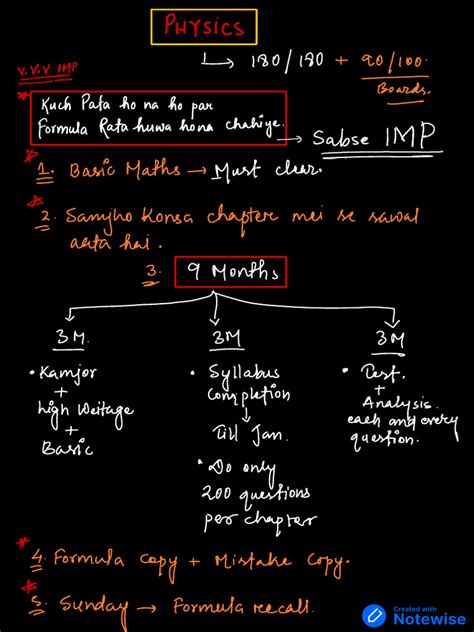 PHYSICS
→ 180/180 + 90/100.
Boards.
V.V.V IMP
* Kuch Pata ho na ho par
Formula Rata huwa hona chahiye. → Sabse IMP
* 1. Basic Maths → Must clear.
* 2. Samjho Konsa chapter mei se sawal
aata hai.
3. 9 Months
3M.
• Kamjor
+
high Weitage
+
Basic
3M
• Syllabus
completion
↓
Till Jan.
• Do only
200 questions
per chapter
3M
• Test.
+
Analysis.
each and every
question.
* 4. Formula copy + Mistake Copy.
* 5. Sunday → Formula recall.
Created with
Notewise